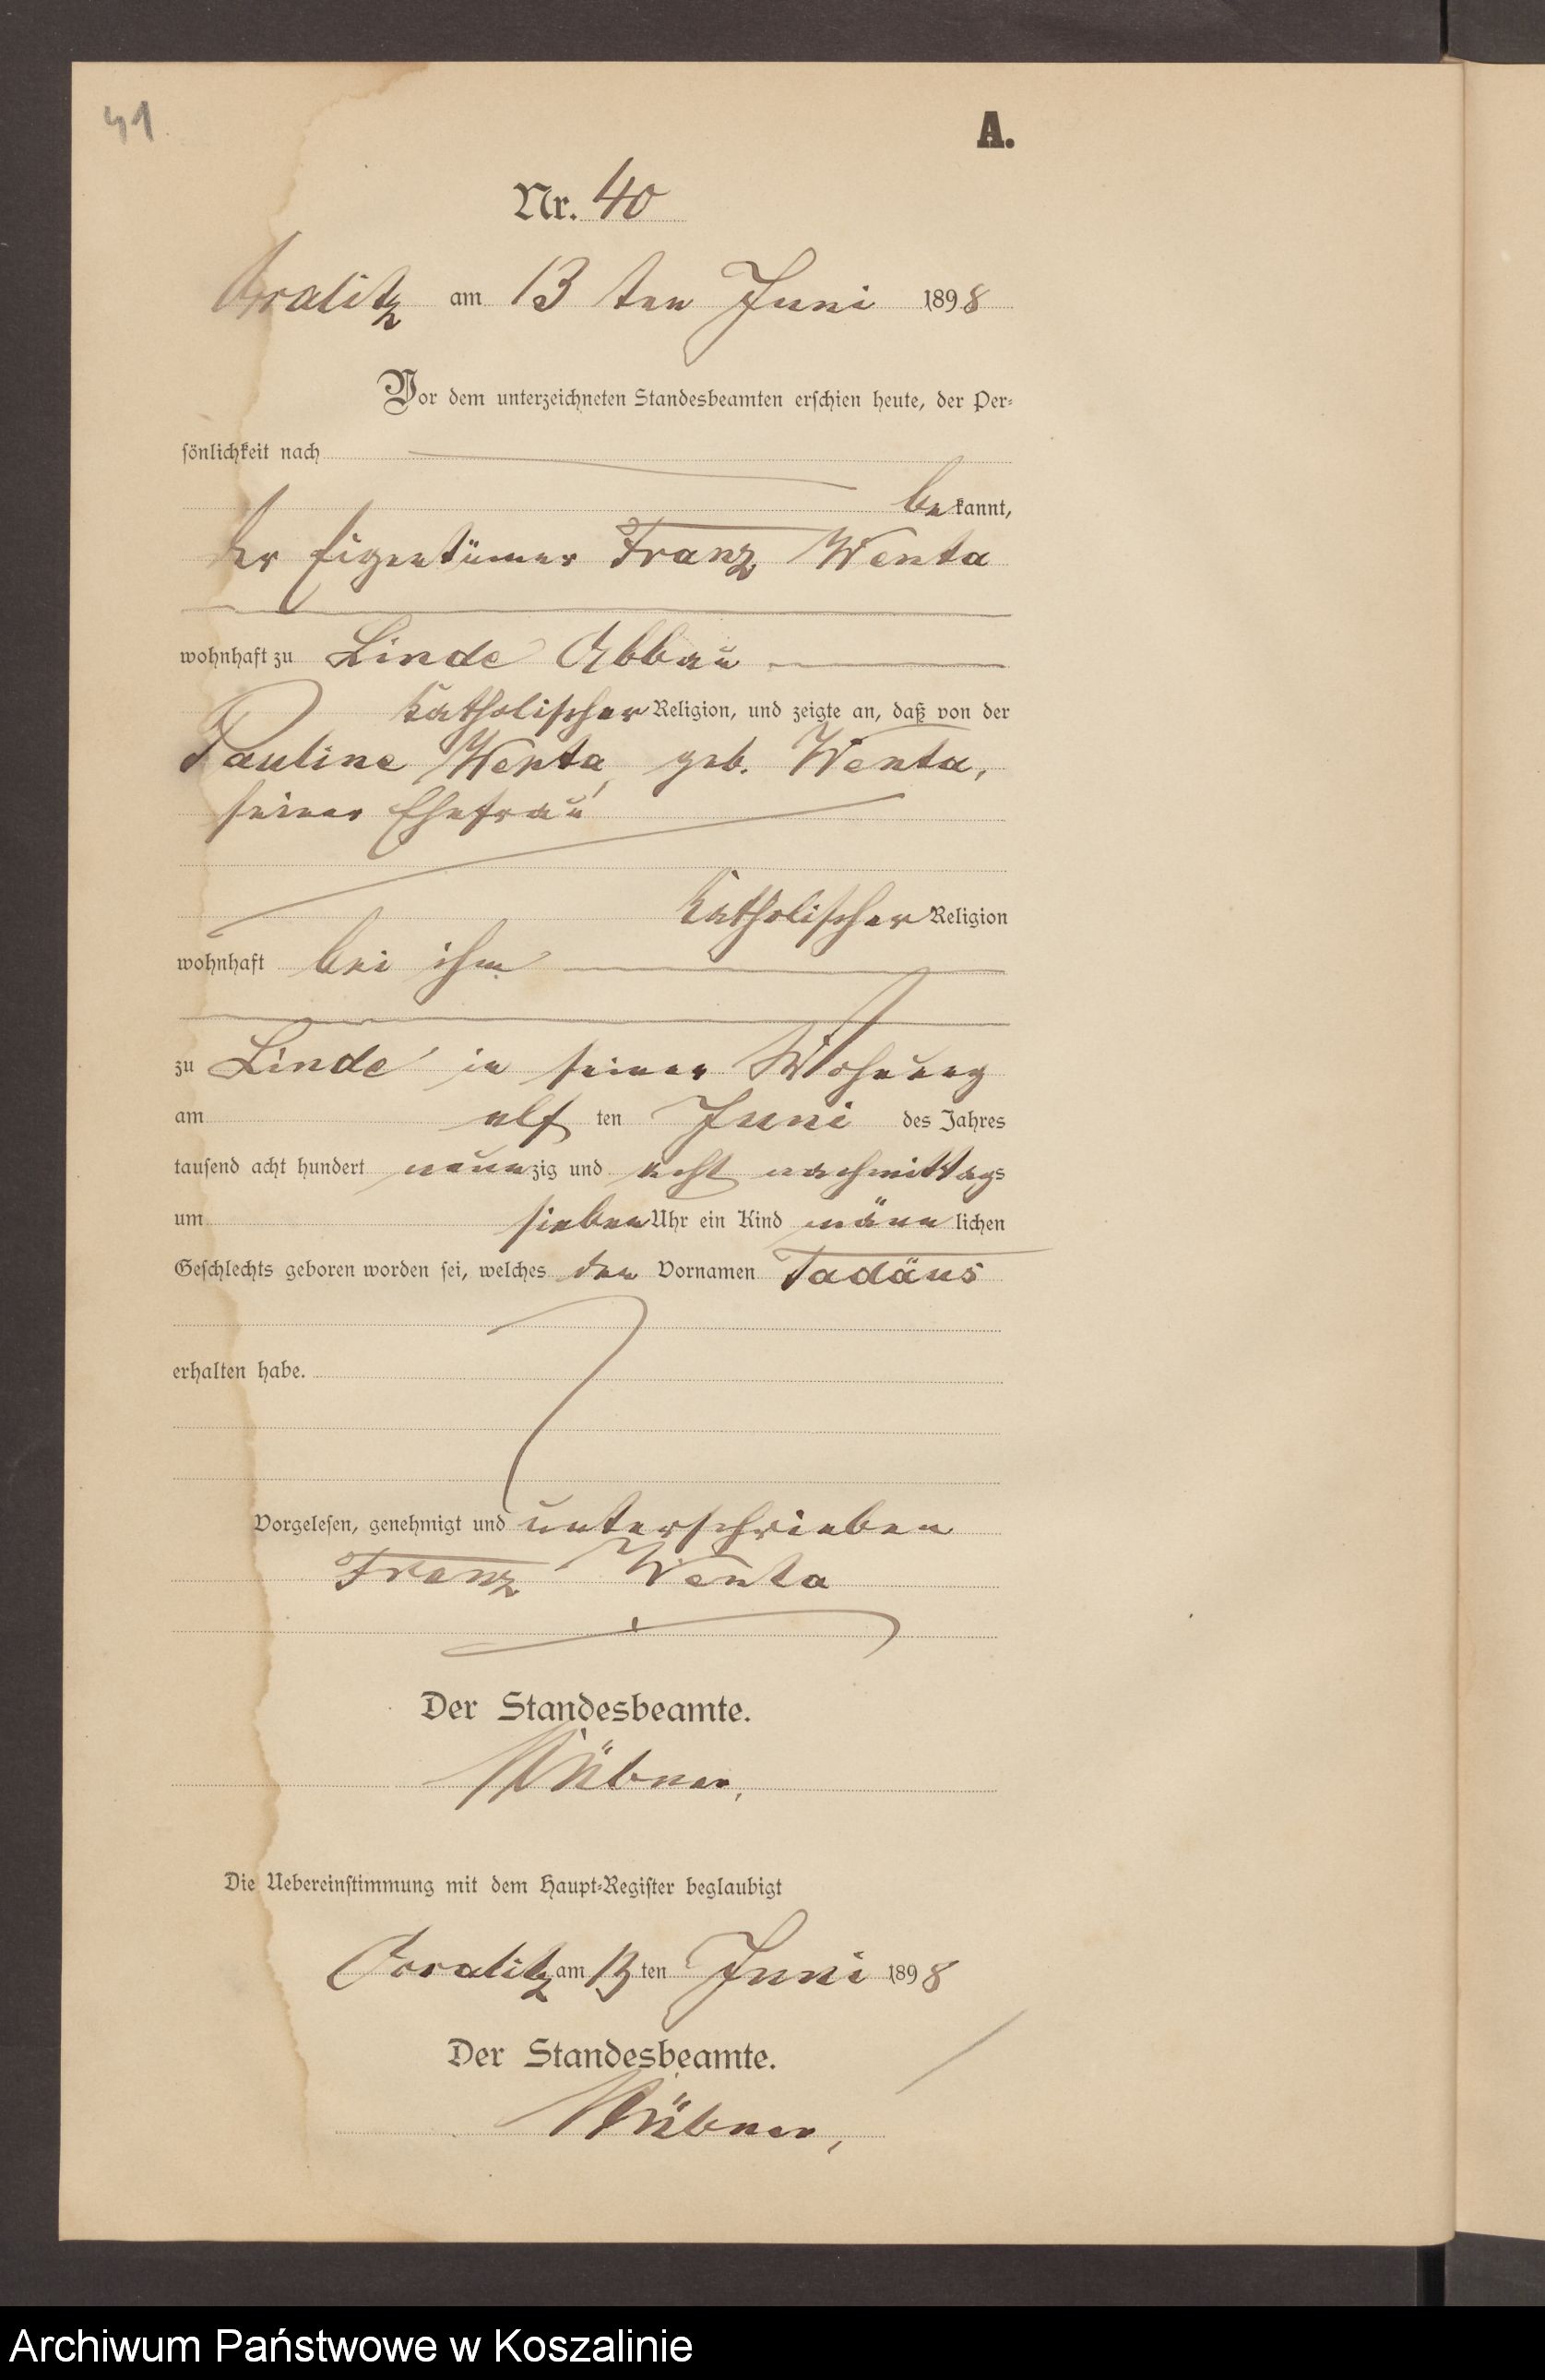 41
A.
Nr. 40
am 13 ten Juni 1898
Vor dem unterzeichneten Standesbeamten erschien heute, der Per-
sönlichkeit nach
bekannt,
der Eigentümer Franz Wenta
wohnhaft zu Linde Abbau
katholischer Religion, und zeigte an, daß von der
Pauline Wenta, geb. Wenta,
seiner Ehefrau
katholischer Religion
wohnhaft bei ihm
zu Linde in seiner Wohnung
am elf ten Juni des Jahres
tausend acht hundert neunzig und acht nachmittags
um sieben Uhr ein Kind männlichen
Geschlechts geboren worden sei, welches den Vornamen Tadäus
erhalten habe.
Vorgelesen, genehmigt und unterschrieben
Franz Wenta
Der Standesbeamte.
Die Uebereinstimmung mit dem Haupt-Register beglaubigt
am 13 ten Juni 1898
Der Standesbeamte.
Archiwum Państwowe w Koszalinie